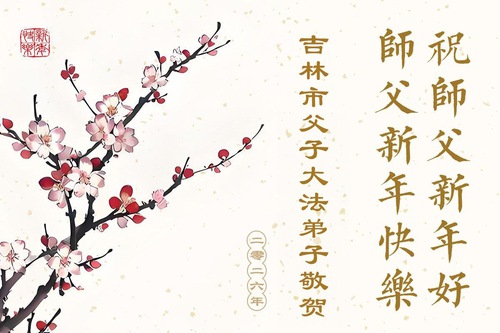 祝師父新年好
師父新年快樂
吉林市父子大法弟子敬贺
二零二六年
新年快樂